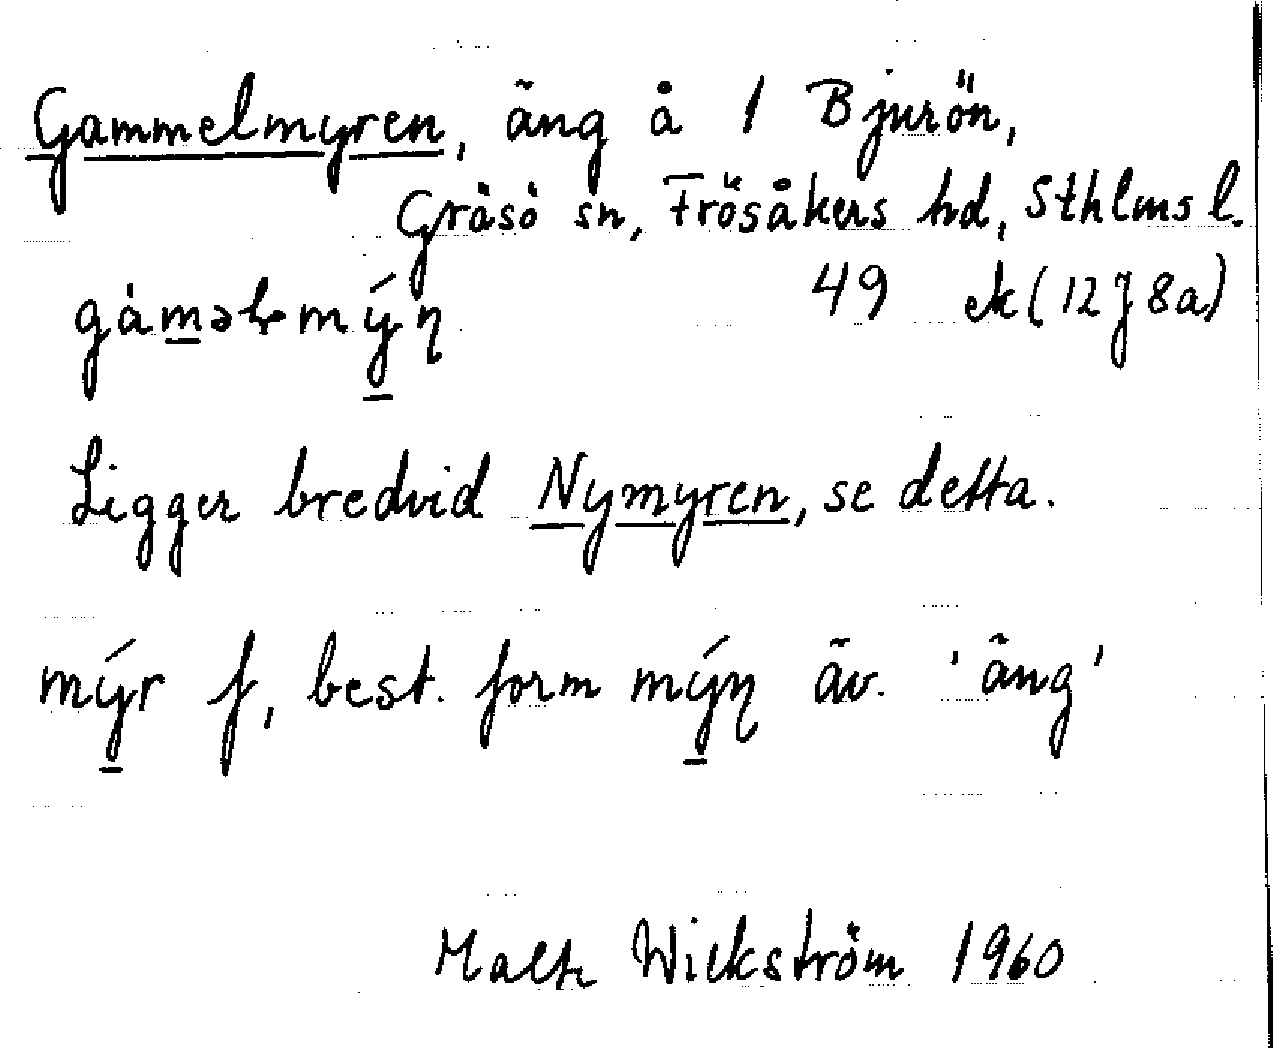 Gammelmyren, äng å 1 Bjurön,
Gräsö sn, Frösåkers hd, Sthlms l.
49 ek (12 J 8a)
Ligger bredvid Nymyren, se detta.
mýr f, best. form mýn̥ äv. 'äng'
Malte Wickström 1960